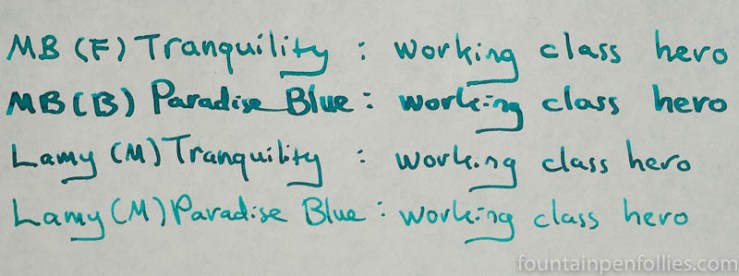 MB (F) Tranquility : working class hero
MB (B) Paradise Blue : working class hero
Lamy (M) Tranquility : working class hero
Lamy (M) Paradise Blue : working class hero
fountainpenfollies.com